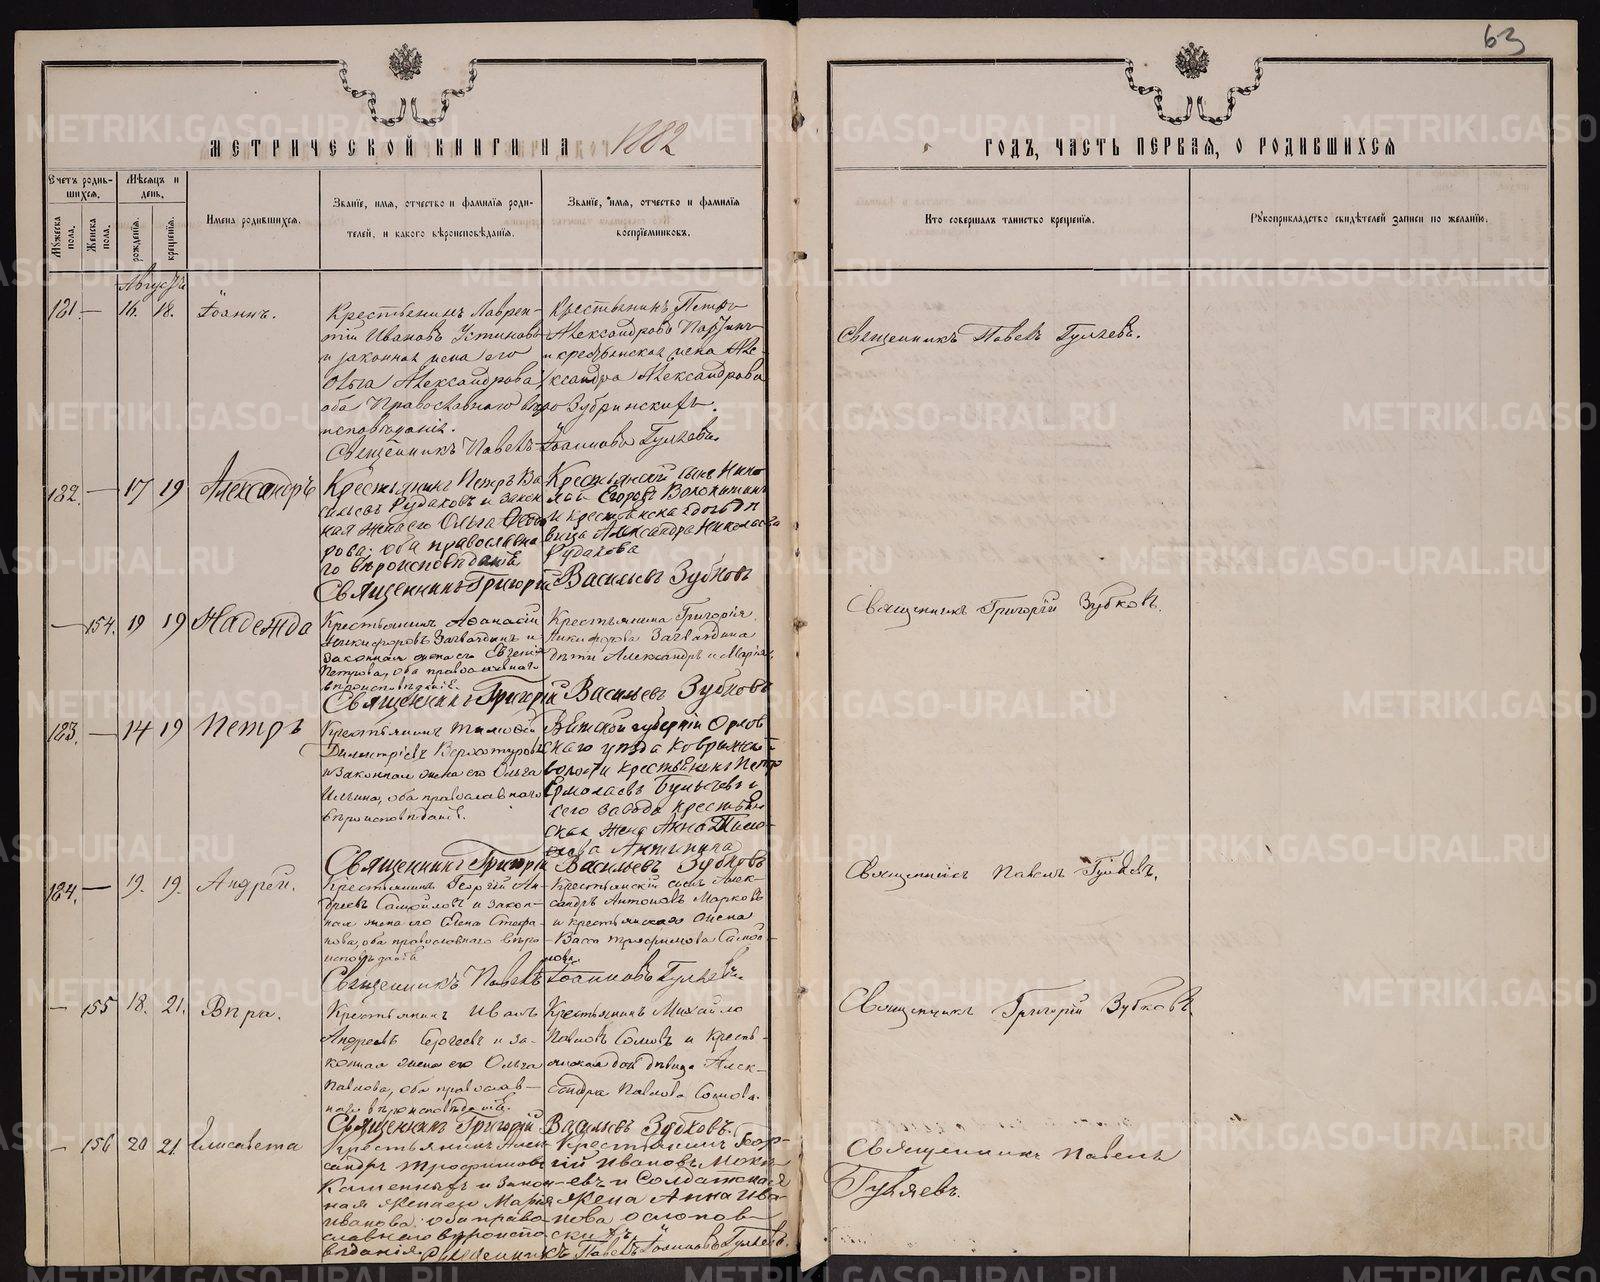 63
МЕТРИЧЕСКОЙ КНИГИ НА 1882
ГОДЪ, ЧАСТЬ ПЕРВАЯ, О РОДИВШИХСЯ
Счетъ родив-
шихся.
Мѣсяцъ и
день.
Мужеска пола.
Женска пола.
рожденія.
крещенія.
Имена родившихся.
Званіе, имя, отчество и фамилія роди-
телей, и какого вѣроисповѣданія.
Званіе, имя, отчество и фамилія
воспріемниковъ.
Кто совершалъ таинство крещенія.
Рукоприкладство свидѣтелей записи по желанію.
Августъ
181. — 16. 18. Іоаннъ.
Крестьянинъ Лаврен-
тій Ивановъ Устиновъ
и законная жена его
Ольга Александрова
оба Православнаго вѣро
исповѣданія.
Крестьянинъ Петръ
Александровъ
и крестьянская жена Але-
ксандра Александрова
Зубринскихъ.
Священникъ Павелъ Іоанновъ Гуляевъ
Священникъ Павелъ Гуляевъ.
182. — 17 19 Александръ
Крестьянинъ Петръ Ва
сильевъ Рудаковъ и закон
ная жена его Ольга Ѳедо
рова; оба православна
го вѣроисповѣданія
Крестьянскій сынъ Нико
лай Егоровъ
и крестьянская дочь дѣ
вица Александра Николаева
Рудакова
Священникъ Григорій Васильевъ Зубковъ
Священникъ Григорій Зубковъ.
— 154. 19 19 Надежда
Крестьянинъ Аѳанасій
Никифоровъ и
законная жена его Евгенія
Петрова, оба православнаго
вѣроисповѣданія.
Крестьянина Григорія
Никифорова
дѣти Александръ и Марія.
Священникъ Григорій Васильевъ Зубковъ
183. — 14 19 Петръ
Крестьянинъ Тимоѳей
Димитріевъ
и законная жена его Ольга
Ильина, оба православнаго
вѣроисповѣданія.
Вятской губерніи Орлов
скаго уѣзда
волости крестьянинъ Петръ
Ермолаевъ Булычевъ и
сего завода крестьян
ская жена Анна
Священникъ Григорій Васильевъ Зубковъ
184. — 19. 19. Андрей.
Крестьянинъ Георгій Ан-
дреевъ Самойловъ и закон-
ная жена его Елена Стефа-
нова, оба православнаго вѣро-
исповѣданія
Крестьянскій сынъ Алек-
сандръ Антоновъ Марковъ
и крестьянская жена
Васса Трофимова Самой-
лова.
Священникъ Павелъ Іоанновъ Гуляевъ
Священникъ Павелъ Гуляевъ.
— 155 18. 21. Вѣра.
Крестьянинъ Иванъ
Андреевъ Сергеевъ и за-
конная жена его Ольга
Павлова, оба православ-
наго вѣроисповѣданія.
Крестьянинъ Михайло
Павловъ Сомовъ и кресть-
янская дочь дѣвица Алек-
сандра Павлова Сомова.
Священникъ Григорій Васильевъ Зубковъ.
Священникъ Григорій Зубковъ.
— 156 20 21 Елисавета
Крестьянинъ Алек-
сандръ Трофимовъ
и закон-
ная жена его Марія
Иванова; оба право
славнаго вѣроиспо
вѣданія.
Крестьянинъ Геор-
гій Ивановъ
и Солдатская
жена Анна Ива-
нова
Священникъ Павелъ Іоанновъ Гуляевъ.
Священникъ Павелъ
Гуляевъ.
METRIKI.GASO-URAL.RU